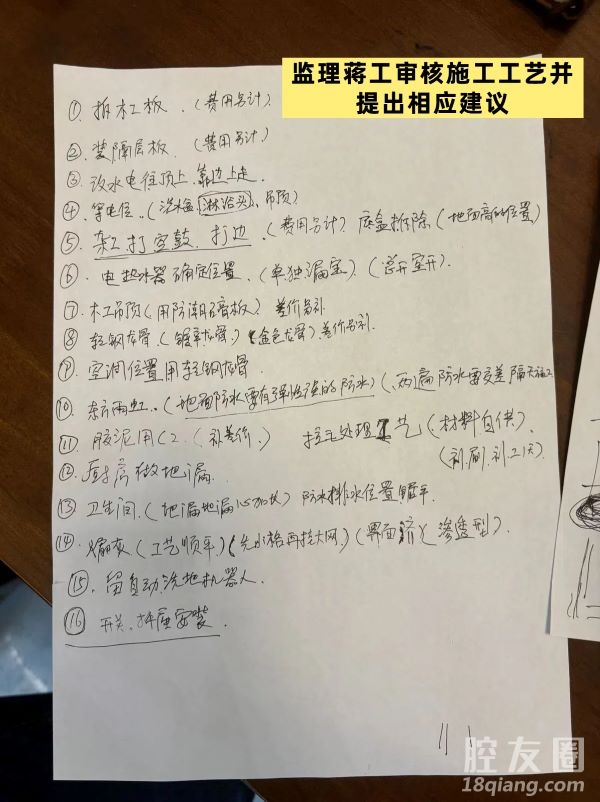 监理蒋工审核施工工艺并
提出相应建议
① 拆木工板.(费用另计)
② 装隔层板.(费用另计)
③ 改水电往顶上.靠边上走.
④ 等电位.(洗水盆 淋浴头、吊顶)
⑤ 杂工打空鼓.打边.(费用另计)底盒拆除(地面高的位置)
⑥ 电热水器确定位置.(单独漏宝).(总开室开).
⑦ 木工吊顶(用防潮石膏板).差价另补
⑧ 轻钢龙骨.(镀锌龙骨.)(金色龙骨)差价另补.
⑨ 空调位置用轻钢龙骨.
⑩ 东方雨虹.(地面防水要有弹性的防水)(两遍防水要交差隔天施工
⑪ 胶泥用C2.(补差价.) 拉毛处理工艺(材料自供).
(补刷.补工钱).
⑫ 厨房做地漏.
⑬ 卫生间.(地漏) 防水排水位置顺平
⑭ (工艺顺平.)(再挂大网.)(界面济)(渗透型).
⑮ 留自动洗地机器人.
⑯ 开关.插座安装.
腔友圈
18qiang.com